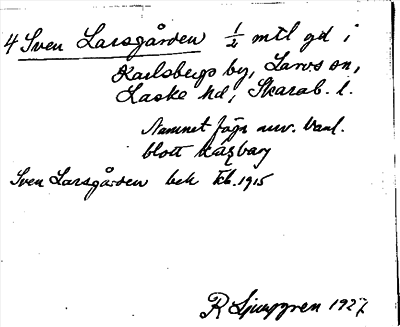 4 Sven Larsgården 1/2 mtl gd i
Karlsbergs by, Larvs sn,
Laske hd, Skarab. l.
Namnet föga anv. Vanl.
blott
Sven Larsgården bek Eb. 1915
R Ljunggren 1927